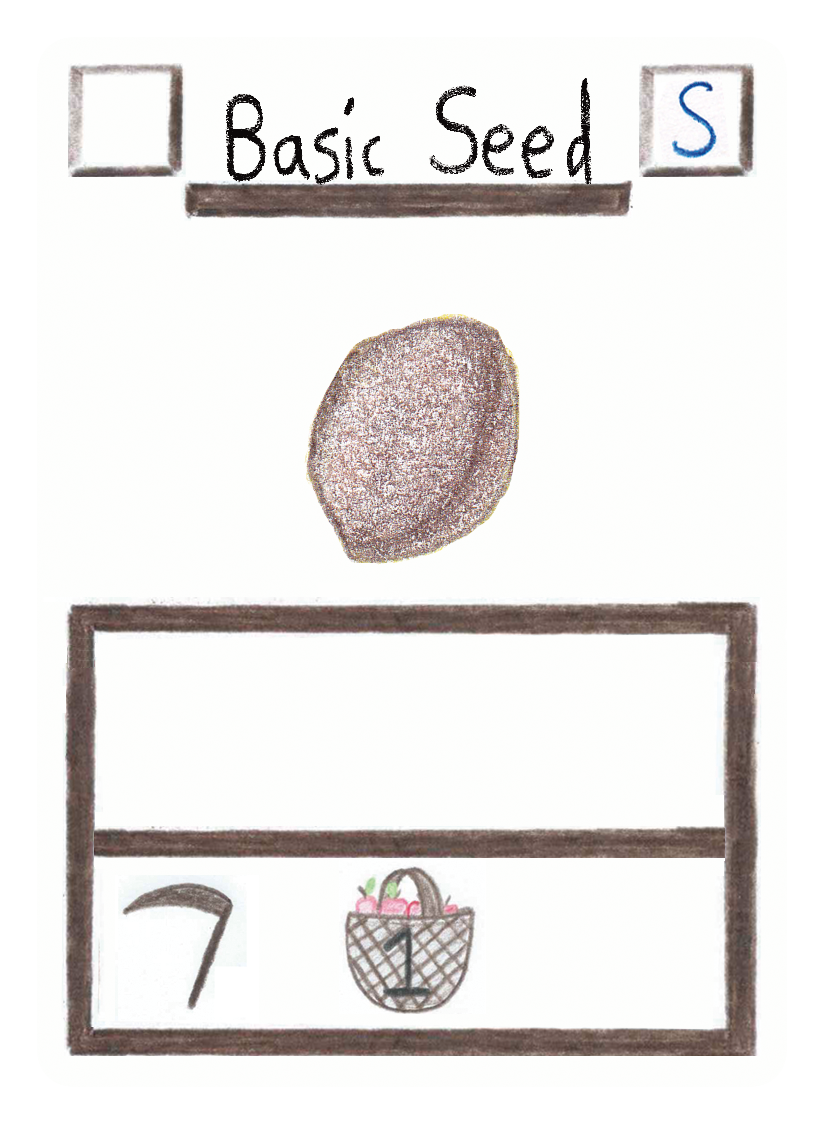 Basic Seed S
1